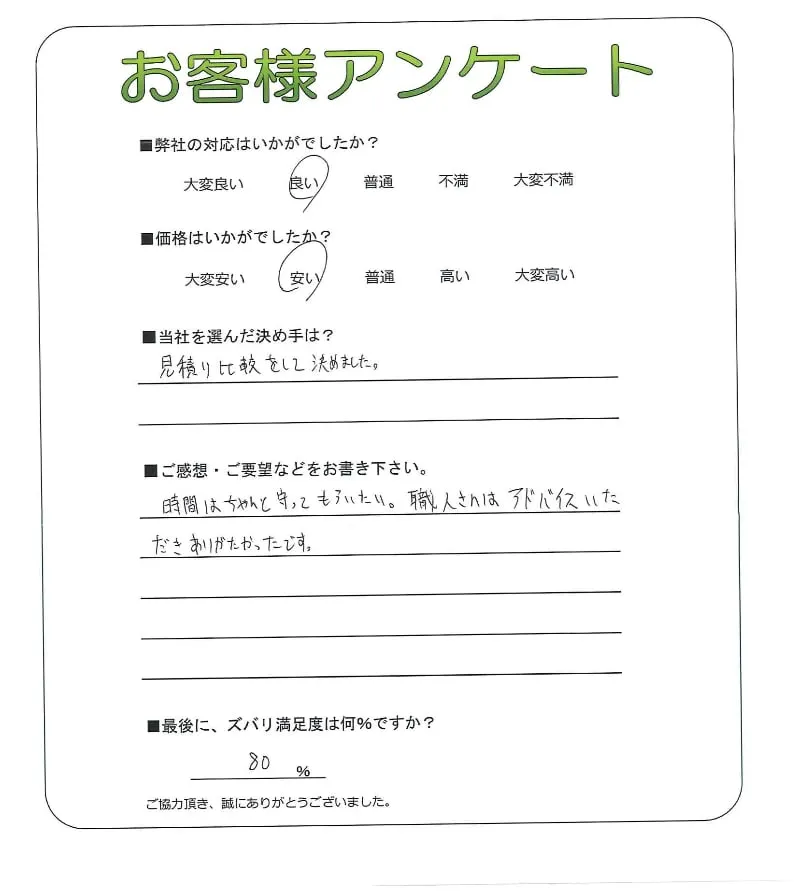 お客様アンケート
■弊社の対応はいかがでしたか？
大変良い 良い 普通 不満 大変不満
■価格はいかがでしたか？
大変安い 安い 普通 高い 大変高い
■当社を選んだ決め手は？
見積り比較をして決めました。
■ご感想・ご要望などをお書き下さい。
時間はちゃんと守ってもらいたい。職人さんはアドバイスいた
だきありがたかったです。
■最後に、ズバリ満足度は何％ですか？
80 %
ご協力頂き、誠にありがとうございました。